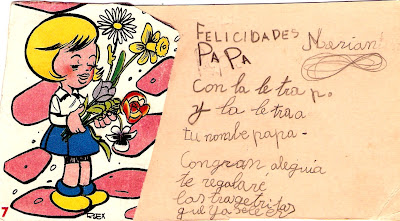 FELICIDADES
PAPA
Marian
Con la letra p.
y la letra a
tu nombe papa-
Con gran aleguia
te regalare
las tragetritas
que ya
7